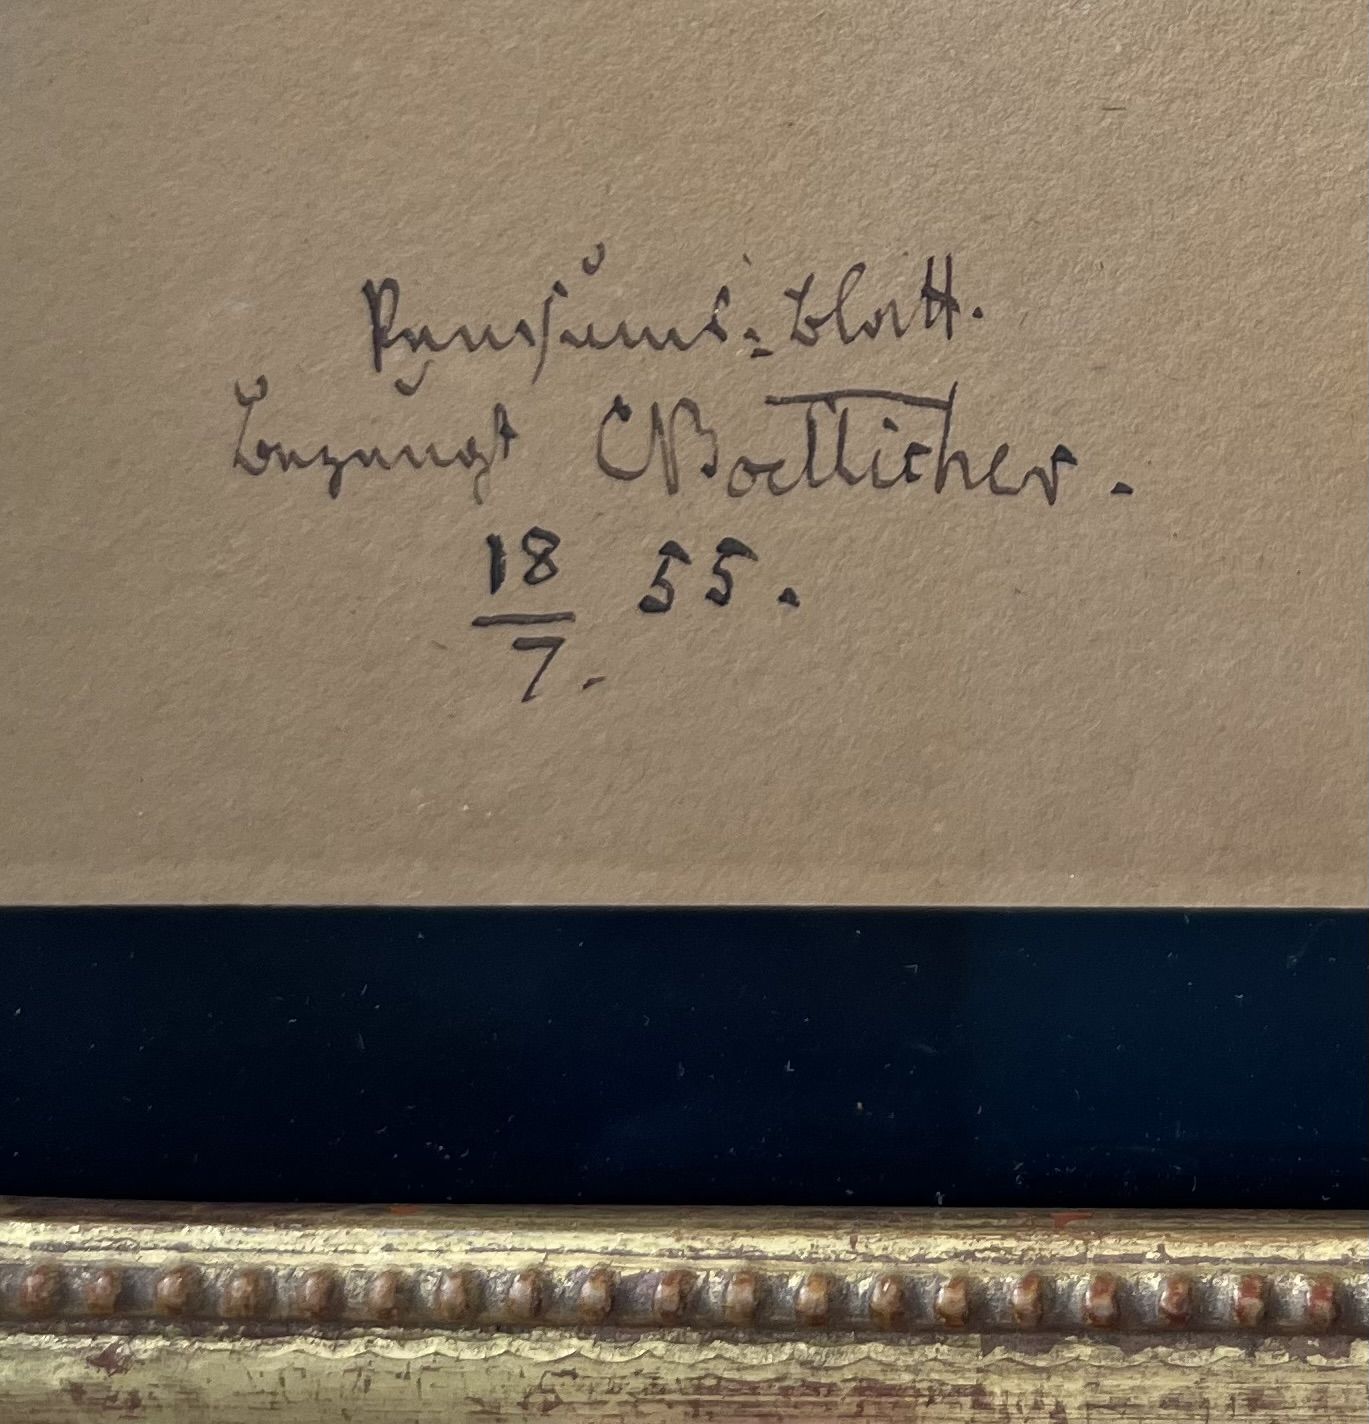 Pensums-Blatt.
Bezeugt CBoetticher.
18/7. 55.